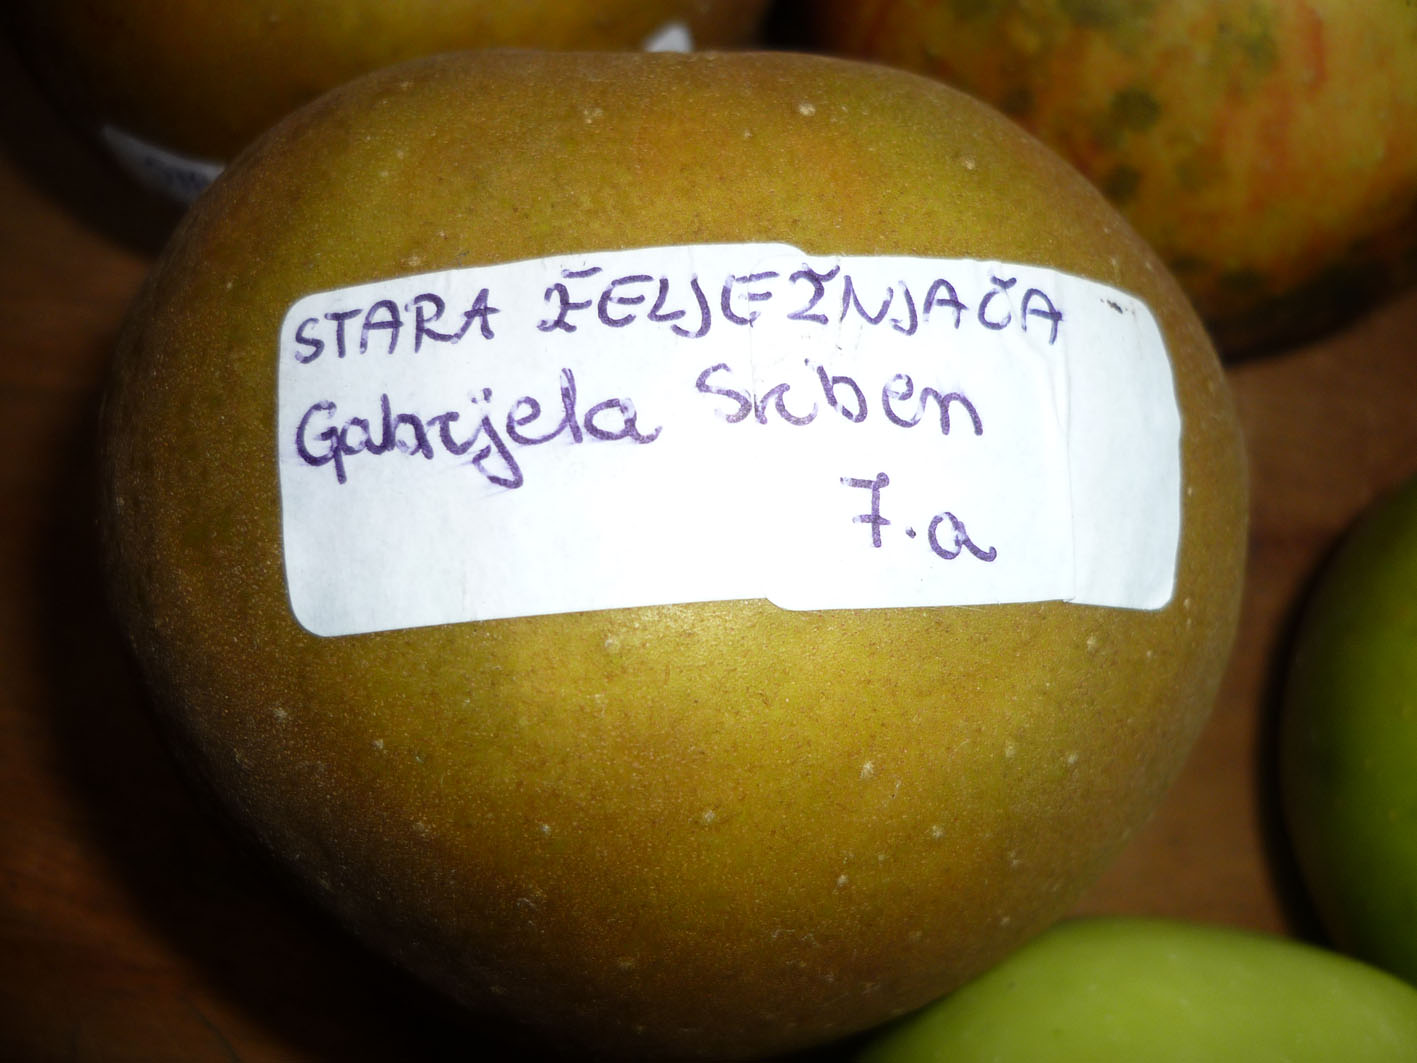 STARA ŽELJEŽNJAČA
Gabrijela Srben
7.a